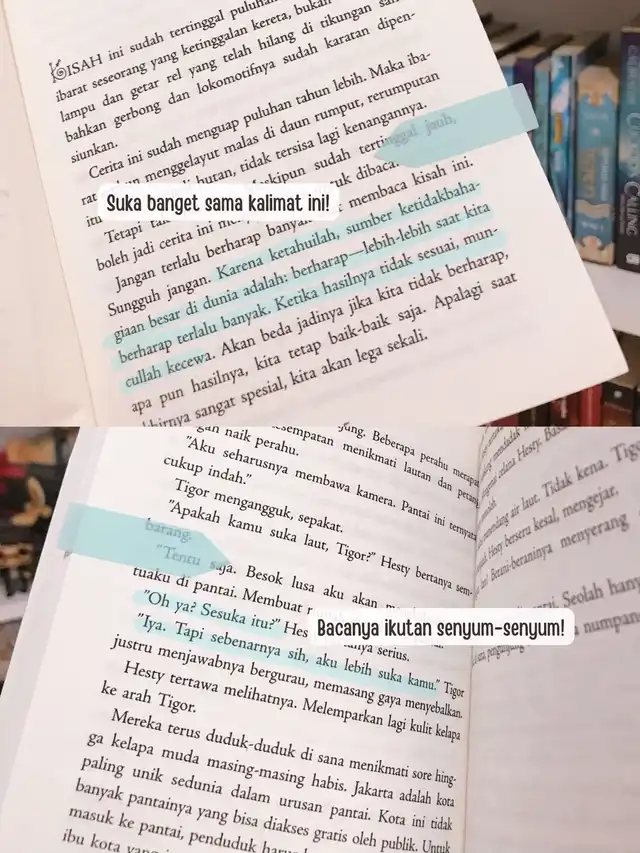 KISAH ini sudah tertinggal puluhan
ibarat seseorang yang ketinggalan kereta, bukan
lampu dan getar rel yang telah hilang di tikungan
bahkan gerbong dan lokomotifnya sudah karatan dipen-
siunkan.
Cerita ini sudah menguap puluhan tahun lebih. Maka iba-
menggelayut malas di daun rumput, rerumputan
hutan, tidak tersisa lagi kenangannya.
itu
Tetapi Meskipun sudah tertinggal jauh,
boleh jadi cerita ini untuk dibaca.
Jangan terlalu berharap banyak membaca kisah ini.
Suka banget sama kalimat ini!
Sungguh jangan. Karena ketahuilah, sumber ketidakbaha-
giaan besar di dunia adalah: berharap—lebih-lebih saat kita
berharap terlalu banyak. Ketika hasilnya tidak sesuai, mun-
cullah kecewa. Akan beda jadinya jika kita tidak berharap,
apa pun hasilnya, kita tetap baik-baik saja. Apalagi saat
sangat spesial, kita akan lega sekali.
CALLING
Beberapa perahu merapat
menikmati lautan dan
naik perahu.
"Aku seharusnya membawa kamera. Pantai ini ternyata
cukup indah."
Tigor mengangguk, sepakat.
"Apakah kamu suka laut, Tigor?" Hesty bertanya sem-
barang.
"Tentu saja. Besok lusa aku akan
tuaku di pantai. Membuat
"Oh ya? Sesuka itu?" serius.
Bacanya ikutan senyum-senyum!
"Iya. Tapi sebenarnya sih, aku lebih suka kamu." Tigor
justru menjawabnya bergurau, memasang gaya menyebalkan.
Hesty tertawa melihatnya. Melemparkan lagi kulit kelapa
ke arah Tigor.
Mereka terus duduk-duduk di sana menikmati sore hing-
ga kelapa muda masing-masing habis. Jakarta adalah kota
paling unik sedunia dalam urusan pantai. Kota ini tidak
banyak pantainya yang bisa diakses gratis oleh publik. Untuk
masuk ke pantai, penduduk
ibu kota
celana Hesty.
menendang air laut. Tidak kena. Tigor
Hesty berseru kesal, mengejar.
Berani-beraninya menyerang
Seolah